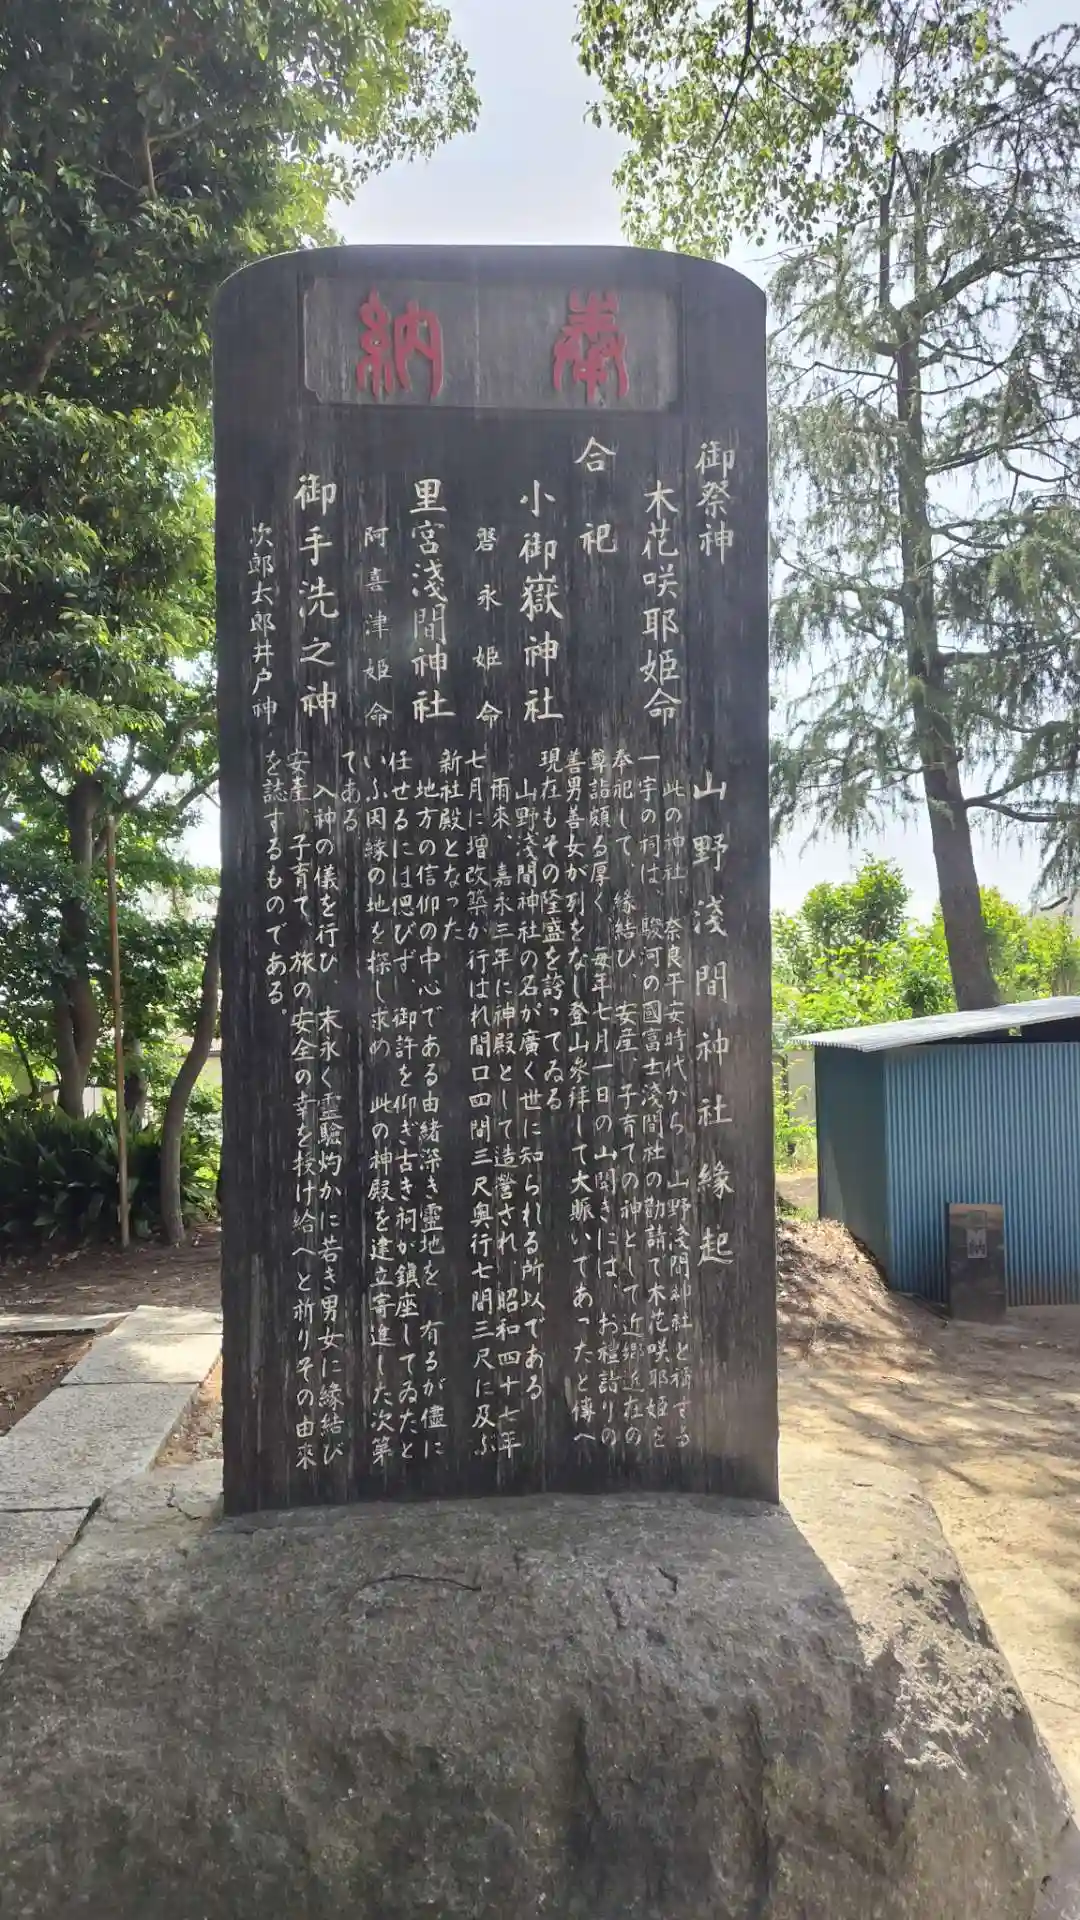 奉納
御祭神
木花咲耶姫命
合祀
小御嶽神社
磐永姫命
里宮浅間神社
阿喜津姫命
御手洗之神
次郎太郎井戸神
山野浅間神社縁起
此の神社、奈良平安時代から、山野浅間神社と稱する
一宇の祠は、駿河の國富士浅間社の勸請で木花咲耶姫を
奉祀して、縁結び、安産、子育ての神として近郷近在の
尊詣頗る厚く、毎年七月一日の山開きには、お禮詣りの
善男善女が列をなし登山參拝して大賑いであったと傳へ
現在もその隆盛を誇ってゐる
山野浅間神社の名が廣く世に知られる所以である
雨來、嘉永三年に神殿として造營され、昭和四十七年
七月に増改築が行はれ間口四間三尺奥行七間三尺に及ぶ
新社殿となった
地方の信仰の中心である由緒深き靈地を、有るが儘に
任せるには偲びず、御許を仰ぎ古き祠が鎭座してゐたと
いふ因縁の地を探し求め、此の神殿を建立寄進した次第
である
入神の儀を行ひ、末永く霊驗灼かに若き男女に縁結び
安産、子育て、旅の安全の幸を授け給へと祈りその由來
を誌するものである。